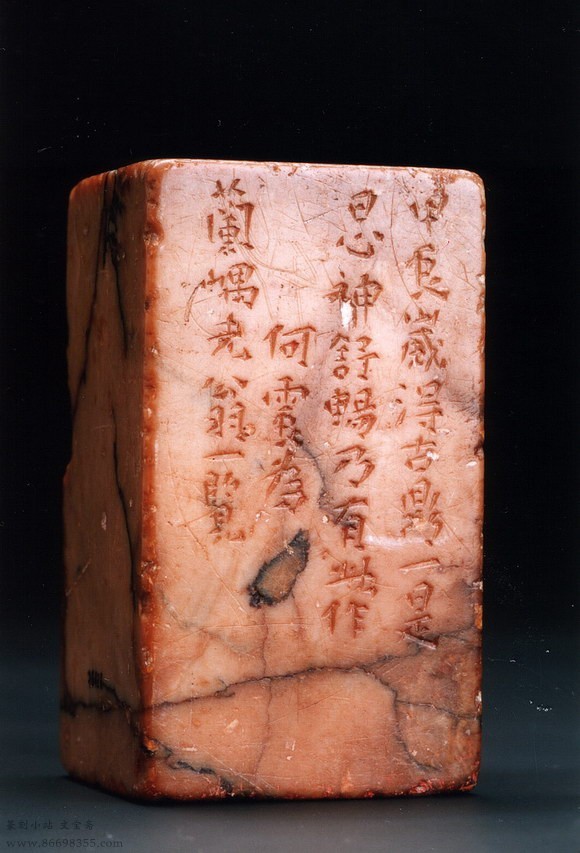 甲辰歲得古鼎一是
日心神舒暢乃有此作
何震為
蘭嵎老翁一覽
篆刻小站
www.86698355.com